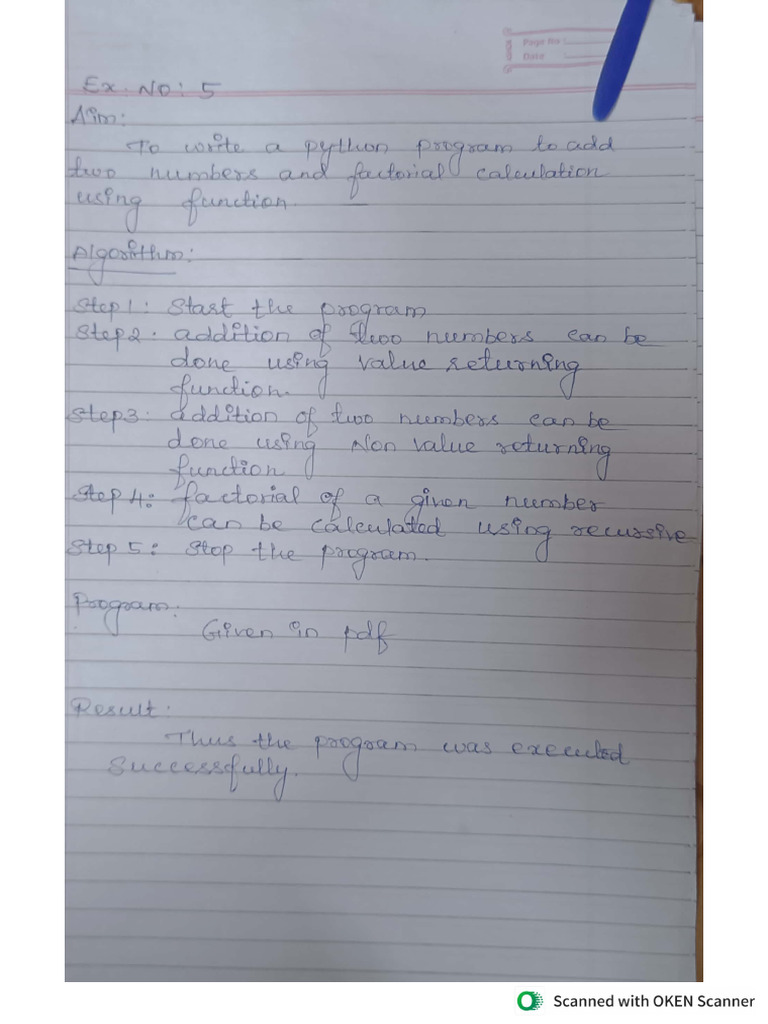 Page No :
Date
Ex. No: 5
Aim:
To write a python program to add
two numbers and factorial calculation
using function.
Algorithm:
Step 1: Start the program
Step 2. addition of two numbers can be
done using value returning
function.
Step 3. addition of two numbers can be
done using Non value returning
function.
Step 4: factorial of a given number
can be calculated using recursive
Step 5: Stop the program.
Program:
Given in pdf
Result:
Thus the program was executed
successfully.
Scanned with OKEN Scanner